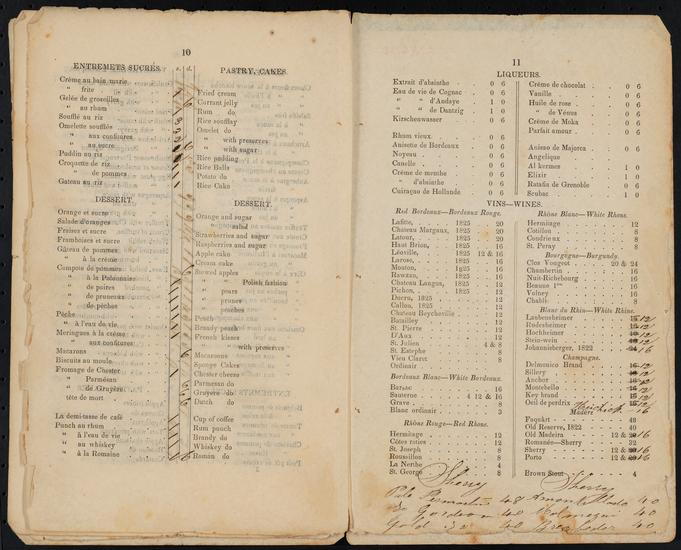 10
ENTREMETS SUCRÉS.
Crême au bain marie
" frite
Gelée de groseilles
" au rhum
Soufflé au riz
Omelette soufflée
" aux confitures
" au sucre
Puddin au riz
Croquette de riz
" de pommes
Gateau au riz
DESSERT.
Orange et sucre
Salade d'oranges
Fraises et sucre
Framboises et sucre
Gâteau de pommes
" à la crême
Compote de pommes
" à la Polonnaise
" de poires
" de pruneaux
" de pêches
Pêche
" à l'eau de vie
Meringues à la crême
" aux confitures
Macarons
Biscuits au moule
Fromage de Chester
" Parmésan
" de Gruyère
" tête de mort
La demitasse de café
Punch au rhum
" à l'eau de vie
" au whiskey
" à la Romaine
s. d.
PASTRY, CAKES.
Fried cream
Currant jelly
Rum do
Rice soufflay
Omelet do
" with preserves
" with sugar
Rice pudding
Rice Balls
Potato do
Rice Cake
DESSERT.
Orange and sugar
" salad
Strawberries and sugar
Raspberries and sugar
Apple cake
Cream cake
Stewed apples
" Polish fashion
" pears
" prunes
" peaches
Peach
Brandy peach
French kisses
" with preserves
Macaroons
Sponge Cakes
Chester cheese
Parmesan do
Gruyere do
Dutch do
Cup of coffee
Rum punch
Brandy do
Whiskey do
Roman do
11
LIQUEURS.
Extrait d'absinthe 0 6
Eau de vie de Cognac 0 6
" " d'Andaye 1 0
" " de Dantzig 1 0
Kirschenwasser 0 6
Rhum vieux 0 6
Anisette de Bordeaux 0 6
Noyeau 0 6
Canelle 0 6
Crême de menthe 0 6
" d'absinthe 0 6
Cuiraçao de Hollande 0 6
Crême de chocolat 0 6
" Vanille 0 6
Huile de rose 0 6
" de Vénus 0 6
Crême de Moka 0 6
Parfait amour 0 6
Anisso de Majorca 0 6
Angelique
Al kermes 1 0
Elixir 1 0
Ratafia de Grenoble 0 6
Scubac 1 0
VINS—WINES.
Red Bordeaux—Bordeaux Rouge.
Lafitte, 1825 20
Chateau Margaux, 1825 20
Latour, 1825 20
Haut Brion, 1825 16
Léoville, 1825 12 & 16
Larose, 1825 16
Mouton, 1825 16
Rawzan, 1825 16
Chateau Langua, 1825 12
Pichon, 1825 12
Ducru, 1825 12
Callon, 1825 12
Chateau Beycheville 12
Batailley 12
St. Pierre 12
D'Aux 12
St. Julien 4 & 8
St. Estephe 8
Vieu Claret 8
Ordinair
Bordeaux Blanc—White Bordeaux.
Barsac 16
Sauterne 4 12 & 16
Grave 8
Blanc ordinair 3
Rhône Rouge—Red Rhone.
Hermitage 12
Côtes roties 12
St. Joseph 8
Roussillon 8
La Nerthe 4
St. George 8
Rhône Blanc—White Rhone.
Hermitage 12
Cotillon 8
Condrieux 8
St. Peray 8
Bourgogne—Burgundy.
Clos Vougeot 20 & 24
Chambertin 16
Nuit-Richebourg 16
Beaune 1re 16
Volney 16
Chabli 8
Blanc du Rhin—White Rhine.
Laubensheimer 12
Rudesheimer 12
Hochheimer 12
Stein-wein 12
Johannieberger, 1822 16
Champagne.
Delmonico Brand 12
Sillery 12
Anchor 12
Montebello 12
Key brand 12
Oeil de perdrix 12
Madere 16
Faquart 48
Old Reserve, 1822 40
Old Madeira 12 & 16
Romanée—Sherry 32
Sherry 12 & 16
Porto 12 & 16
Brown Stout 4
Sherry
Pale 48
Do Gordon 40
Gold Do 40
Sherry
Amontillado 40
40
40